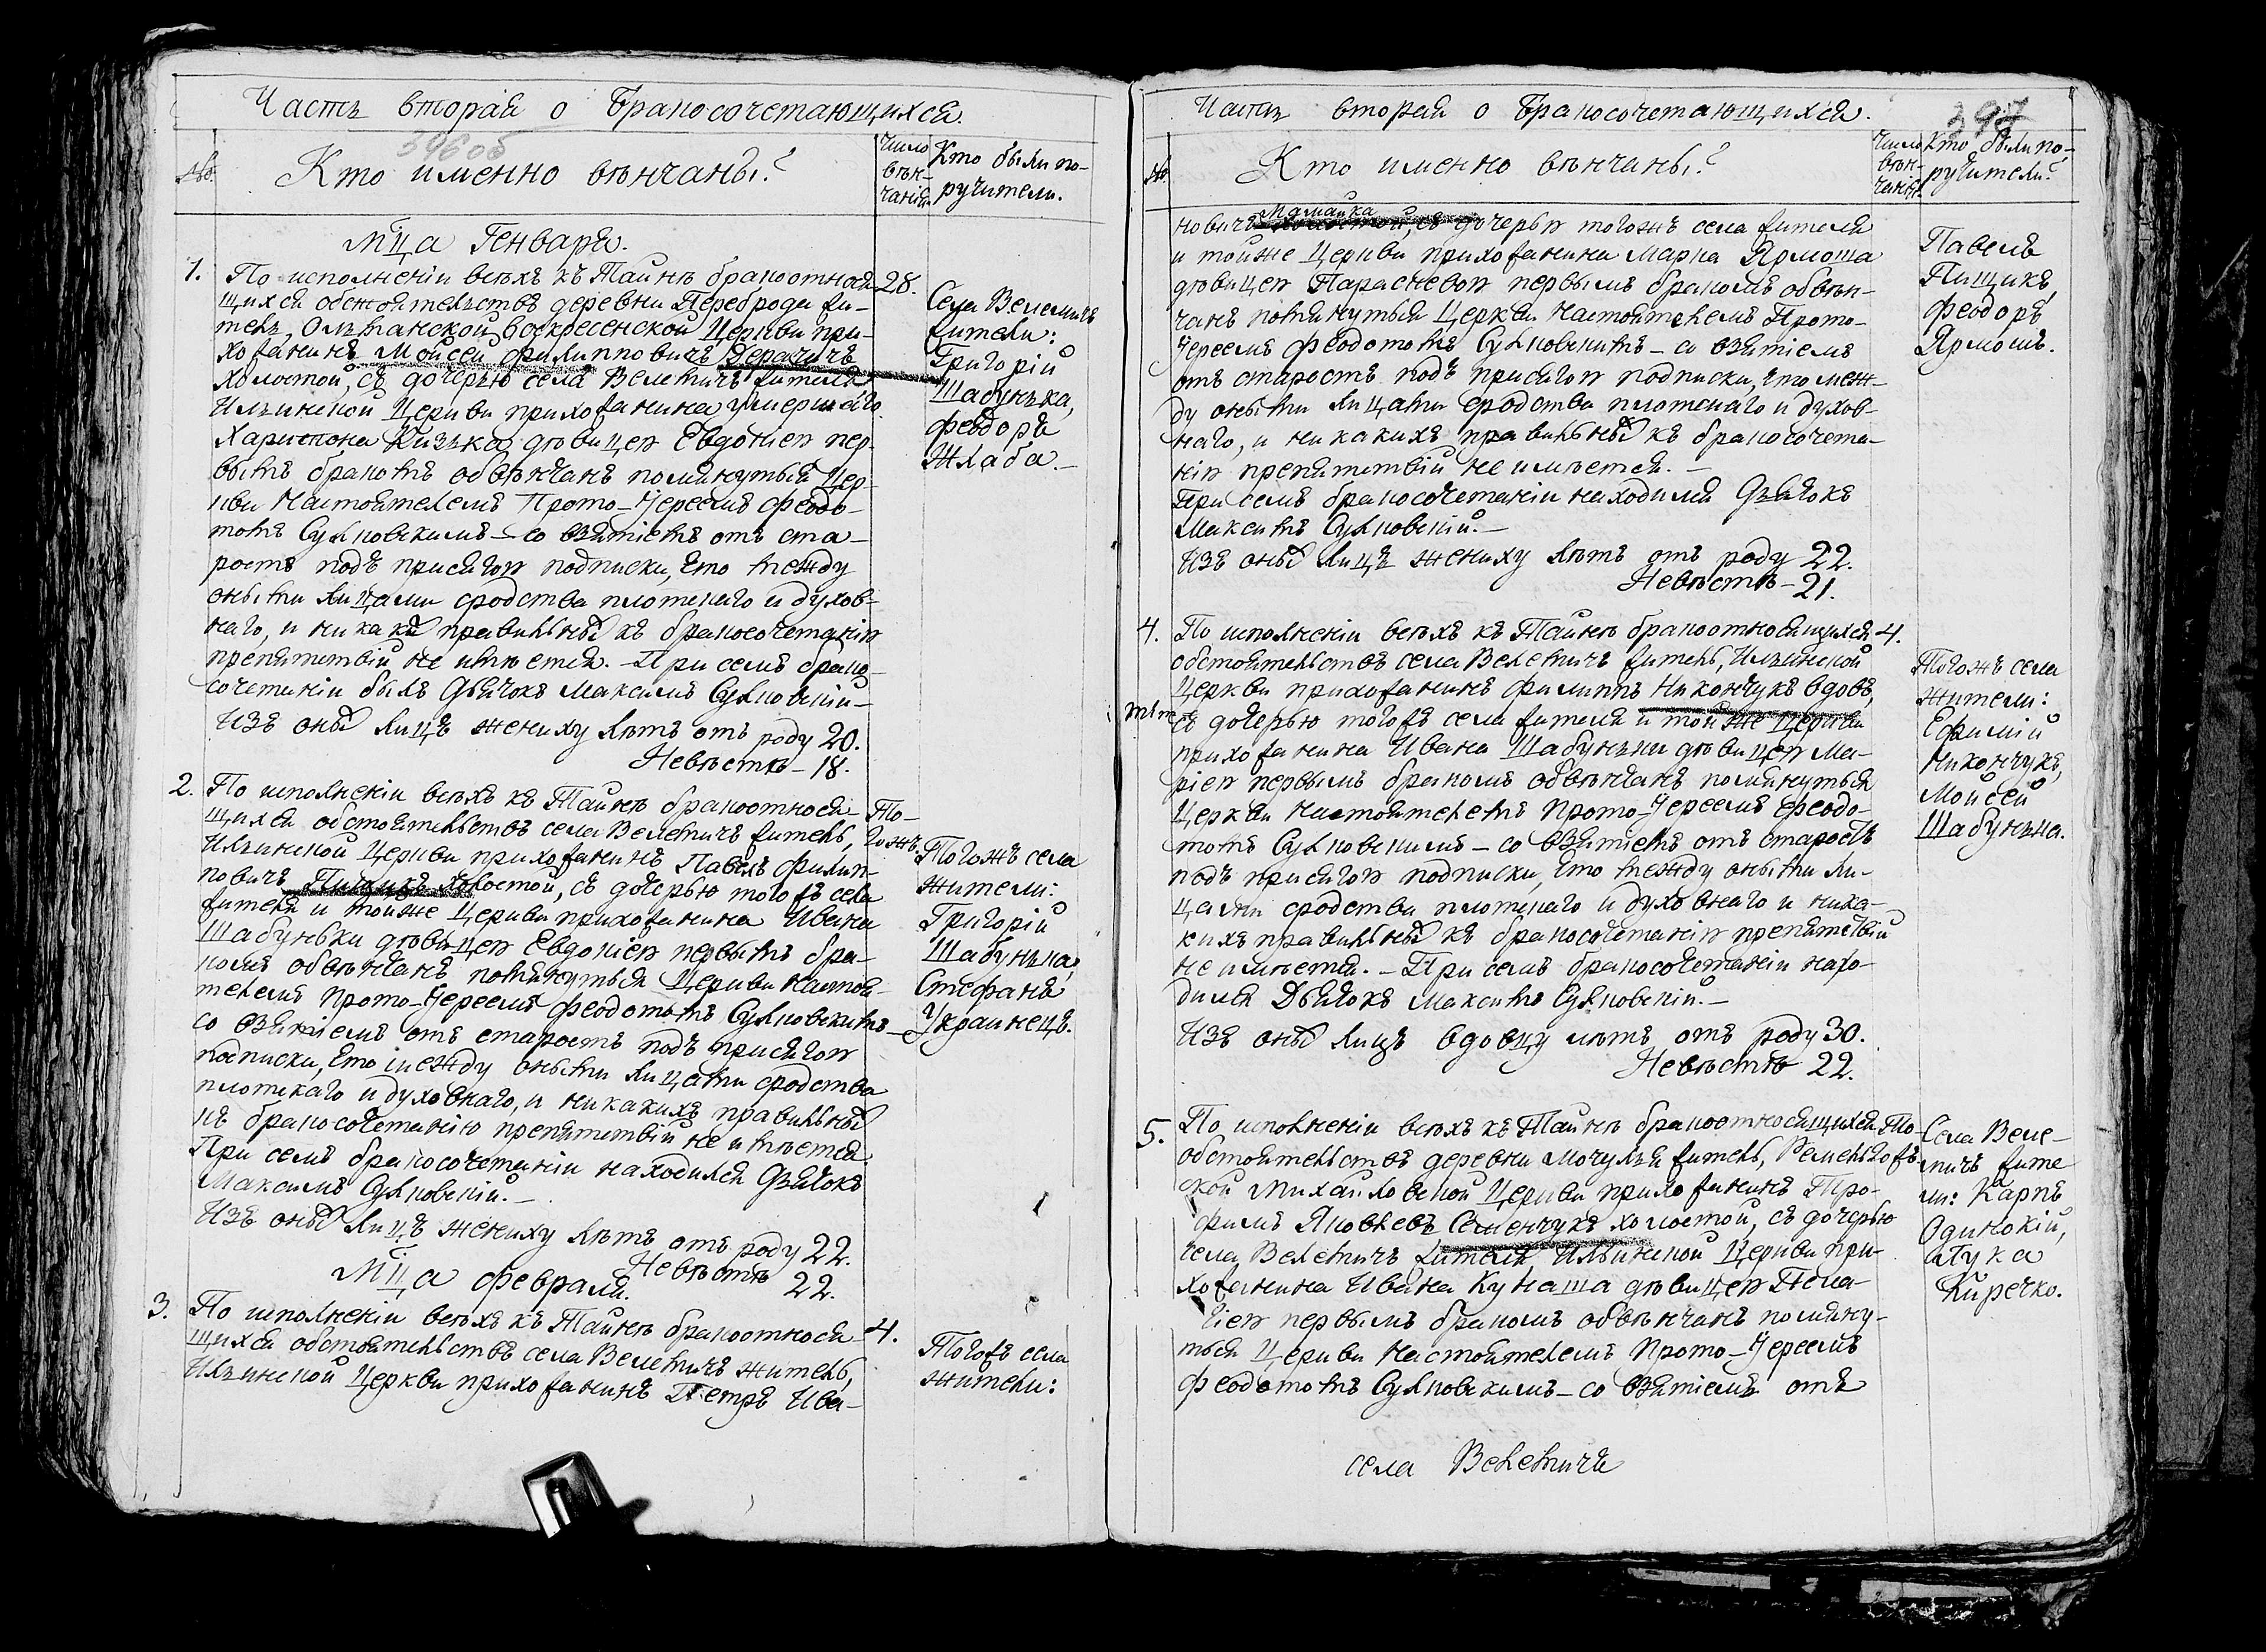 Часть вторая о бракосочетающихся.
396 об
№. Кто именно вѣнчаны? Число вѣнчанія Кто были поручители.
Мца Генваря.
1. По исполненіи всѣхъ къ Тайнѣ бракоотнося- 28.
щихся обстоятельствъ деревни Переброди жи-
тель, Ольманской Воскресенской Церкви при-
хожанинъ Мойсей Филипповичъ Дерачичъ
холостой, съ дочерью села Велемичъ жителя
Ильинской Церкви прихожанина умершаго
Харитона Кизька дѣвицею Евдокіею пер-
вымъ бракомъ обвѣнчанъ помянутыя Цер-
кви Настоятелемъ Прото-Іереемъ Ѳеодо-
томъ Сулковскимъ – со взятіемъ отъ ста-
ростъ подъ присягою подписки, что между
оными лицами сродства плотскаго и духов-
наго, и никакихъ правильныхъ къ бракосочетанію
препятствій не имѣется. – При семъ брако-
сочетаніи былъ Дьячокъ Максимъ Сулковскій –
Изъ оныхъ лицъ жениху лѣтъ отъ роду 20.
Невѣстѣ – 18.
Села Велемичъ
жители:
Григорій
Шабунька,
Ѳеодоръ
Жлаба. –
2. По исполненіи всѣхъ къ Тайнѣ бракоотнося- То-
щихся обстоятельствъ села Велемичъ житель, гожъ.
Ильинской Церкви прихожанинъ Павелъ Филип-
повичъ Пищикъ холостой, съ дочерью того жъ села
жителя и тойже Церкви прихожанина Ивана
Шабуньки дѣвицею Евдокіею первымъ бра-
комъ обвѣнчанъ помянутыя Церкви Настоя-
телемъ Прото-Іереемъ Ѳеодотомъ Сулковскимъ –
со взятіемъ отъ старостъ подъ присягою
подписки, что между оными лицами сродства
плотскаго и духовнаго, и никакихъ правильныхъ
къ бракосочетанію препятствій не имѣется
При семъ бракосочетаніи находился Дьячокъ
Максимъ Сулковскій. –
Изъ оныхъ лицъ жениху лѣтъ отъ роду 22.
Невѣстѣ 22.
Тогожъ села
жители:
Григорій
Шабунька,
Стефанъ
Украинецъ.
Мца Февраля.
3. По исполненіи всѣхъ къ Тайнѣ бракоотнося- 4.
щихся обстоятельствъ села Велемичъ житель,
Ильинской Церкви прихожанинъ Петръ Ива-
Тогожъ села
жители:
Часть вторая о бракосочетающихся.
397
№. Кто именно вѣнчаны? Число вѣнчанія. Кто были поручители?
новичъ Мамайка, съ дочерью тогожъ села жителя
и тойже Церкви прихожанина Марка Ярмоша
дѣвицею Парасковею первымъ бракомъ обвѣн-
чанъ помянутыя Церкви Настоятелемъ Прото-
Іереемъ Ѳеодотомъ Сулковскимъ – со взятіемъ
отъ старостъ подъ присягою подписки, что меж-
ду оными лицами сродства плотскаго и духов-
наго, и никакихъ правильныхъ къ бракосочета-
нію препятствій не имѣется. –
При семъ бракосочетаніи находился Дьячокъ
Максимъ Сулковскій. –
Изъ оныхъ лицъ жениху лѣтъ отъ роду 22.
Невѣстѣ – 21.
Павелъ
Пищикъ,
Ѳеодоръ
Ярмошъ.
4. По исполненіи всѣхъ къ Тайнѣ бракоотносящихся 4.
обстоятельствъ села Велемичъ житель, Ильинской
Церкви прихожанинъ Филиппъ Никончукъ вдовъ,
съ дочерью тогожъ села жителя и тойже Церкви
прихожанина Ивана Шабуньки дѣвицею Ма-
ріею первымъ бракомъ обвѣнчанъ помянутыя
Церкви Настоятелемъ Прото-Іереемъ Ѳеодо-
томъ Сулковскимъ – со взятіемъ отъ старостъ
подъ присягою подписки, что между оными ли-
цами сродства плотскаго и духовнаго и ника-
кихъ правильныхъ къ бракосочетанію препятствій
не имѣется. – При семъ бракосочетаніи нахо-
дился Дьячокъ Максимъ Сулковскій. –
Изъ оныхъ лицъ вдовцу лѣтъ отъ роду 30.
Невѣстѣ 22.
Тогожъ села
жители:
Ефимій
Никончукъ,
Мойсей
Шабунька.
5. По исполненіи всѣхъ къ Тайнѣ бракоотносящихся То-
обстоятельствъ деревни Мочуля житель, Ремель- гожъ
ской Михайловской Церкви прихожанинъ Тро-
фимъ Яковлевъ Семенчукъ холостой, съ дочерью
села Велемичъ жителя, Ильинской Церкви при-
хожанина Ивана Кунаша дѣвицею Пела-
гіею первымъ бракомъ обвѣнчанъ помяну-
тыя Церкви Настоятелемъ Прото-Іереемъ
Ѳеодотомъ Сулковскимъ – со взятіемъ отъ
Села Веле-
мичъ жите
ли: Карпъ
Одинокій,
Лука
Киречко.
села Велемичъ